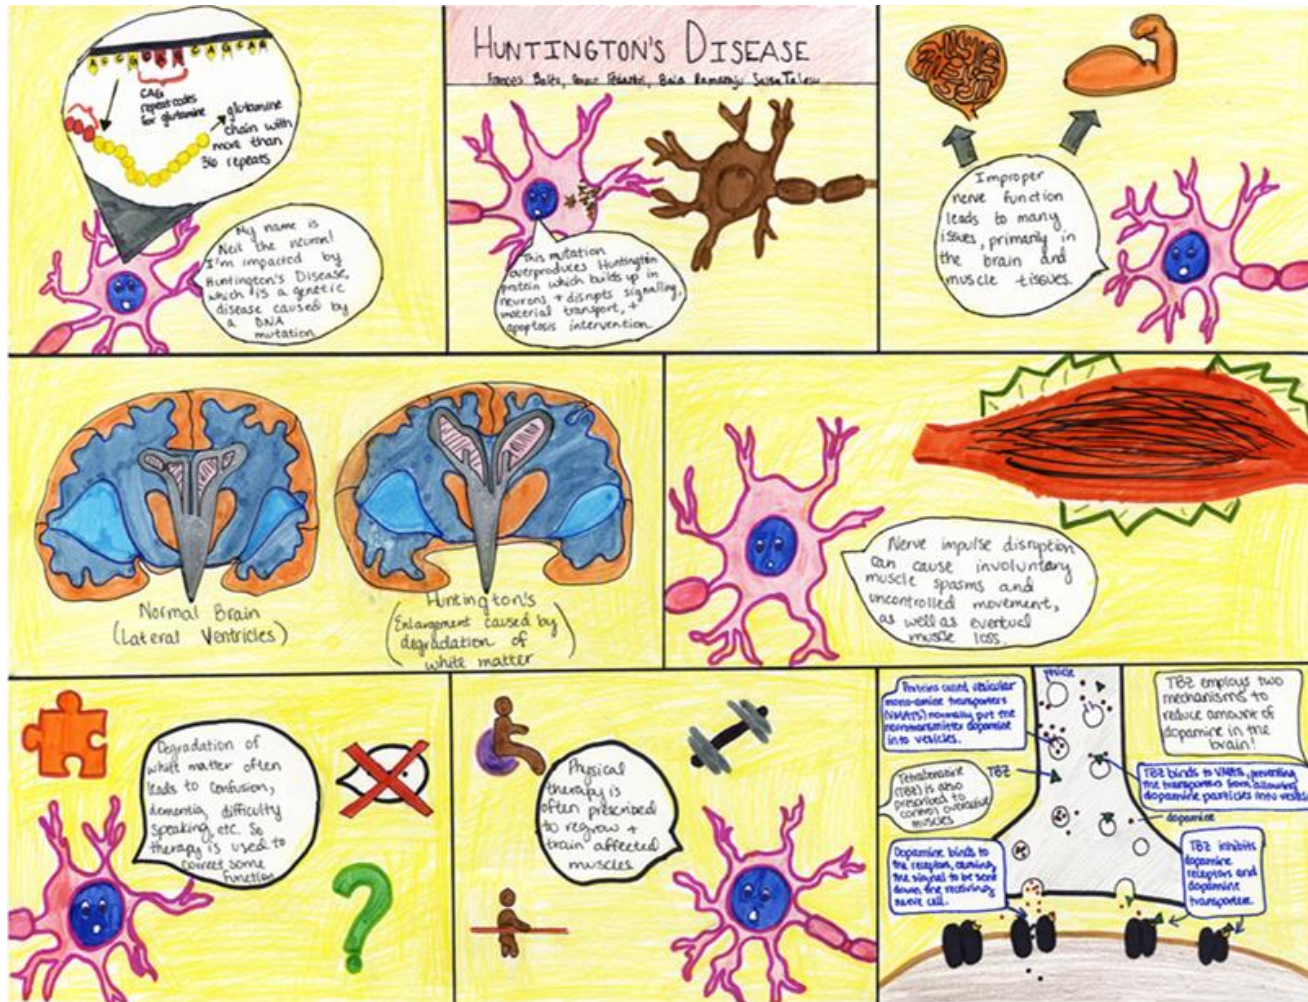 A
G
C
A
G
C
A
G
C
A
G
CAG
repeat codes
for glutamine
glutamine
chain with
more than
36 repeats
My name is
Neil the neuron!
I'm impacted by
Huntington's Disease,
which is a genetic
disease caused by
a DNA
mutation
HUNTINGTON'S DISEASE
Frances
This mutation
overproduces Huntington
protein which builds up in
neurons + disrupts signalling,
material transport, +
apoptosis intervention.
Improper
nerve function
leads to many
issues, primarily in
the brain and
muscle tissues.
Normal Brain
(Lateral Ventricles)
Huntington's
(Enlargement caused by
degradation of
white matter)
Nerve impulse disruption
can cause involuntary
muscle spasms and
uncontrolled movement,
as well as eventual
muscle loss.
Degradation of
white matter often
leads to confusion,
dementia, difficulty
speaking, etc. So
therapy is used to
correct some
function
Physical
therapy is
often prescribed
to regrow +
train affected
muscles
Proteins called vesicular
mono-amine transporters
(VMATS) normally put the
neurotransmitter dopamine
into vesicles.
vesicle
TBZ employs two
mechanisms to
reduce amount of
dopamine in the
brain!
Tetrabenazine
(TBZ) is also
prescribed to
control overactive
muscles
TBZ
TBZ binds to VMATS, preventing
the transporters from allowing
dopamine particles into vesicles
dopamine
Dopamine binds to
the receptors, causing
the signal to be sent
down the receiving
nerve cell.
TBZ inhibits
dopamine
receptors and
dopamine
transporters.